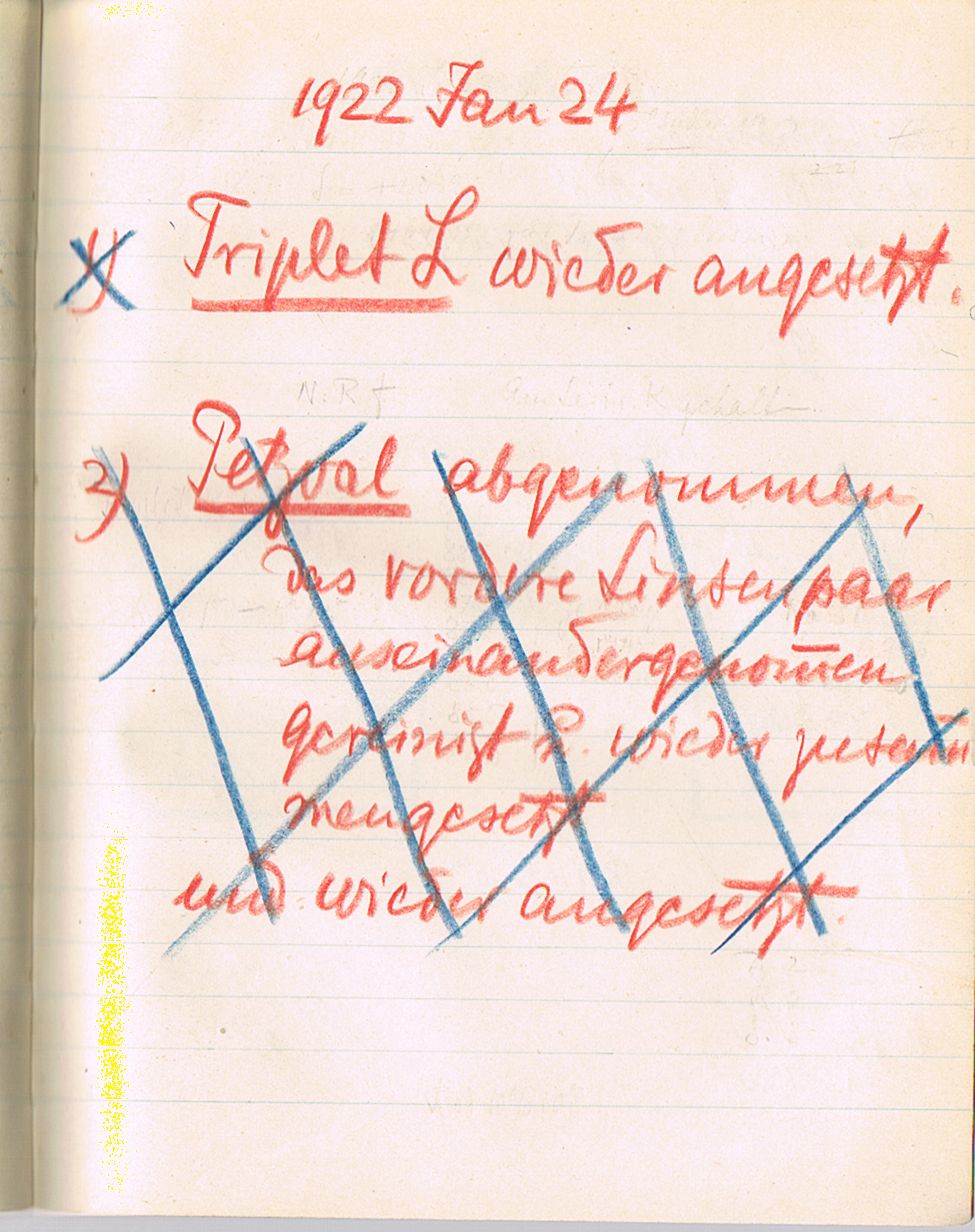 1922 Jan 24
1) Triplet L wieder angesetzt.
2) Petzval abgenommen,
das vordere Linsenpaar
auseinandergenom̅en
gereinigt u. wieder zusam̅
mengesetzt
und wieder angesetzt.